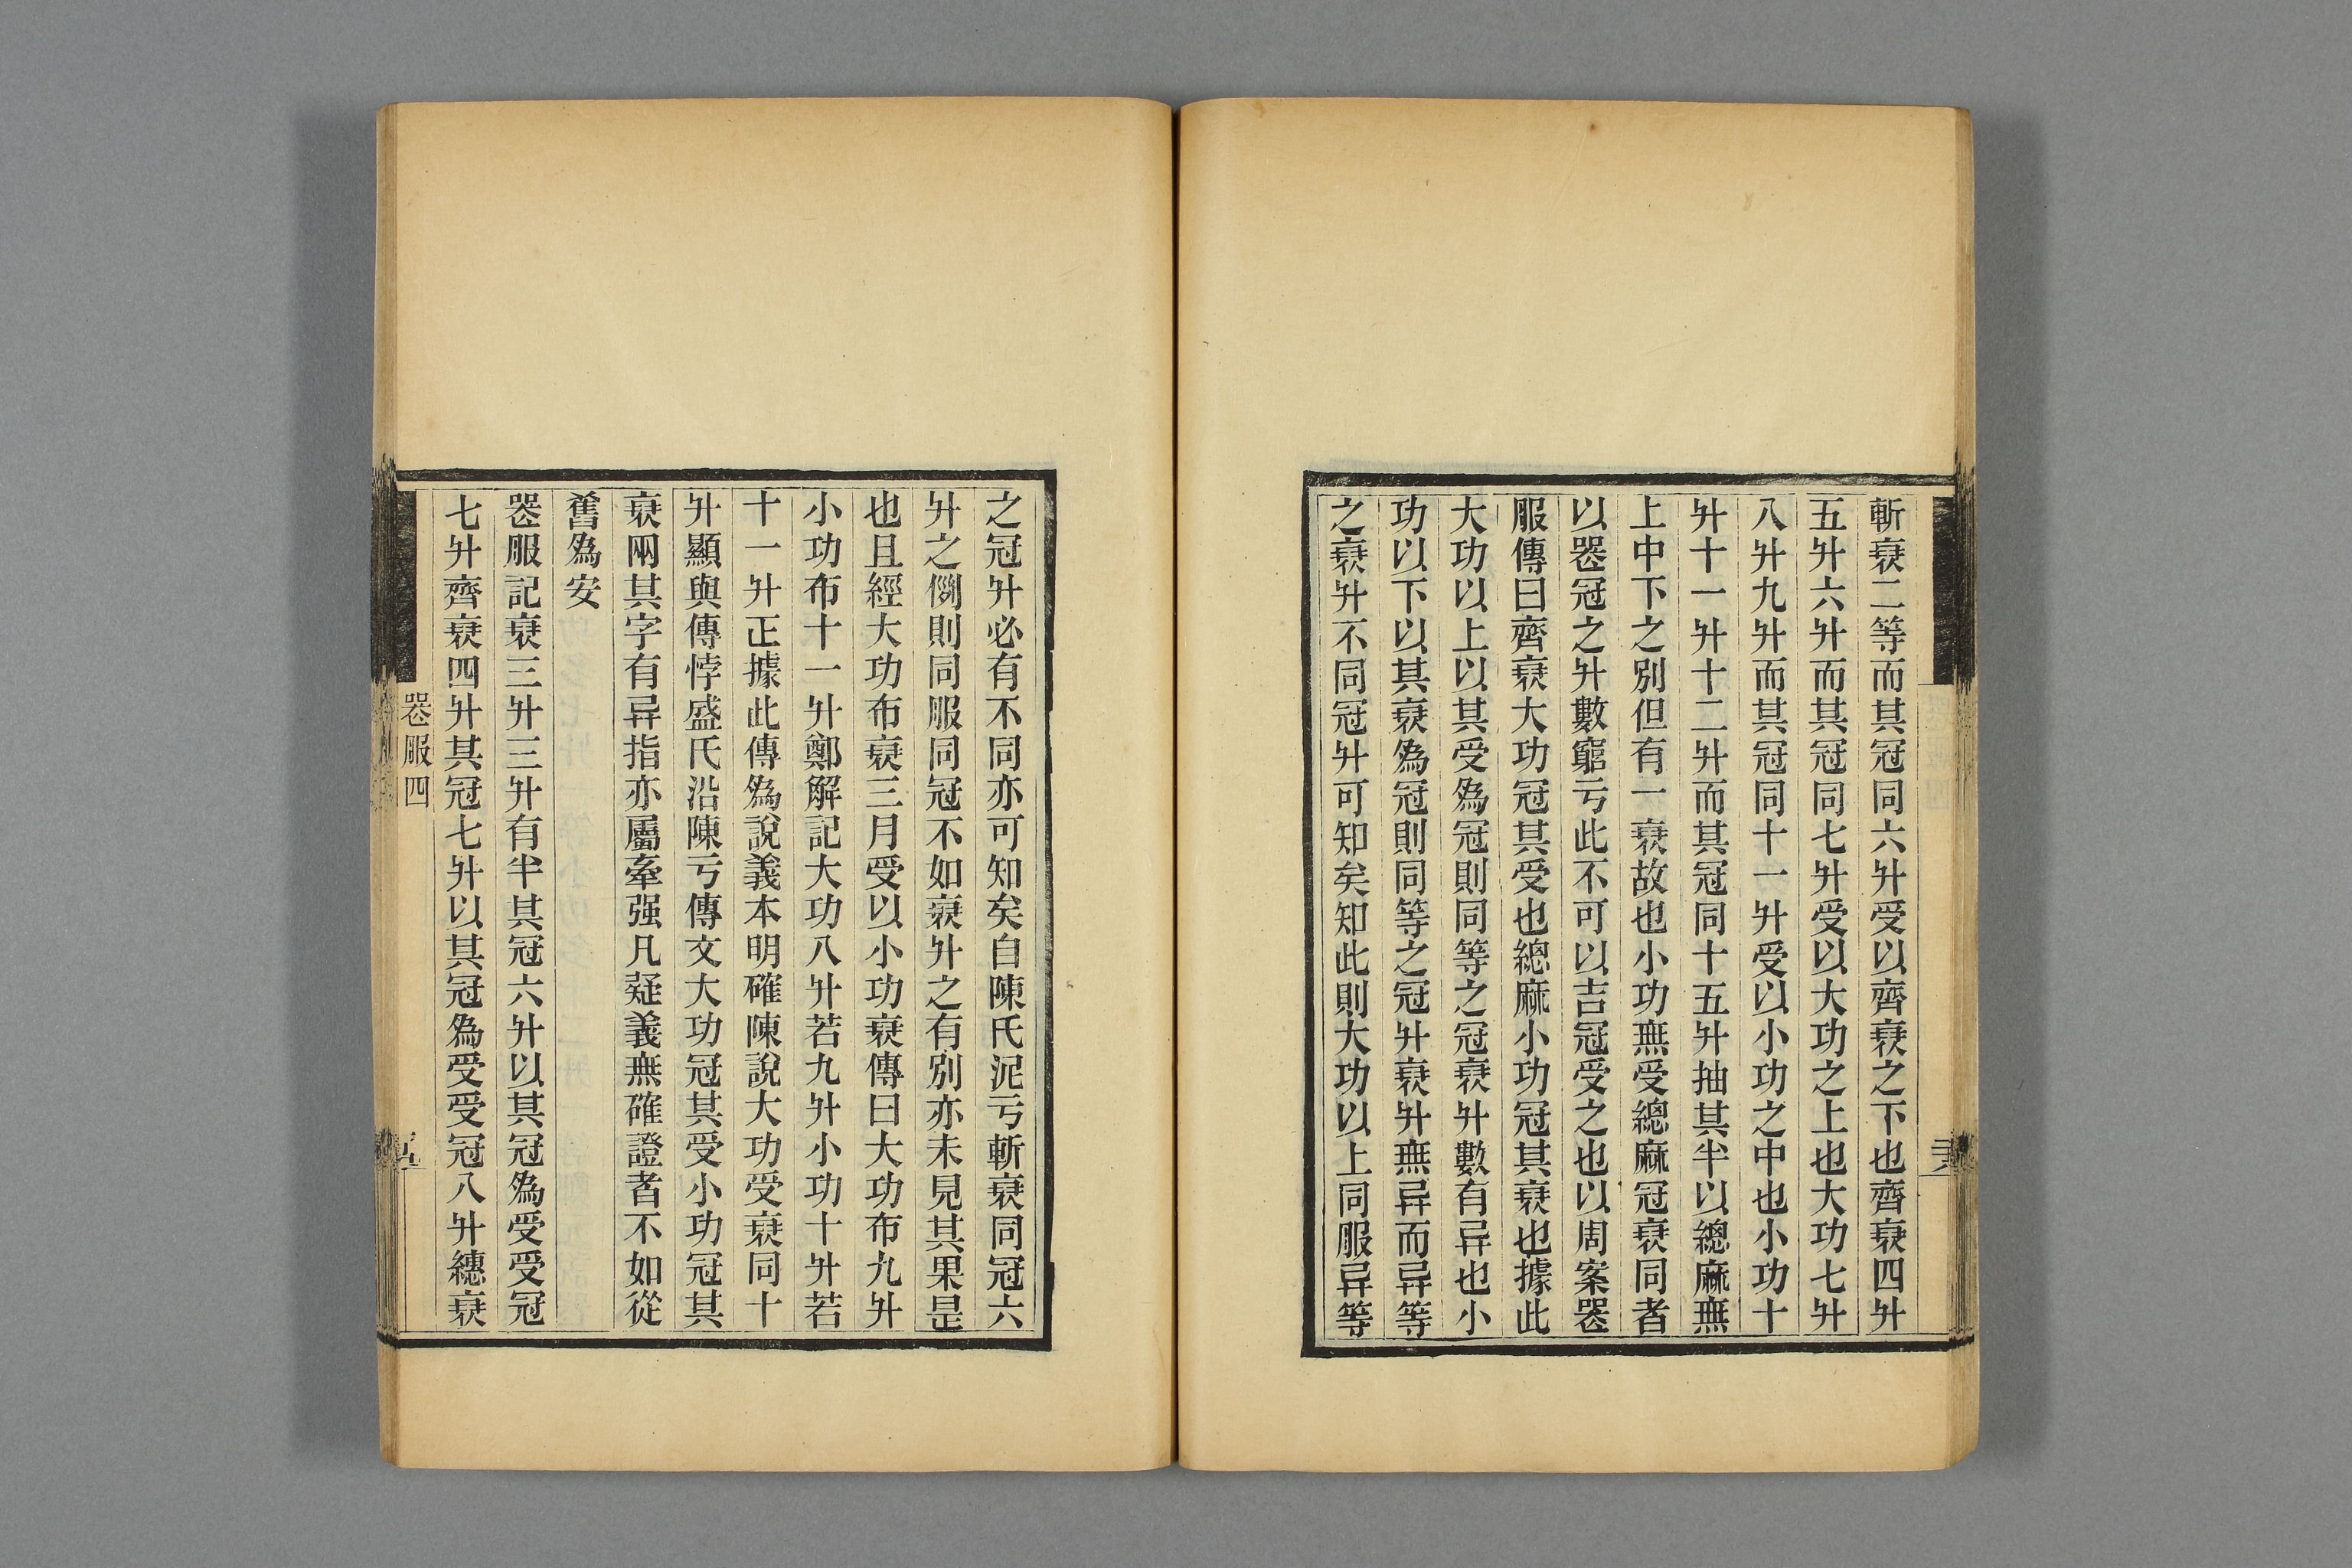 斬衰二等而其冠同六升受以齊衰之下也齊衰四升
五升六升而其冠同七升受以大功之上也大功七升
八升九升而其冠同十一升受以小功之中也小功十
升十一升十二升而其冠同十五升抽其半以緦麻無
上中下之別但有一衰故也小功無受緦麻冠衰同者
以喪冠之升數窮亏此不可以吉冠受之也以周案喪
服傳曰齊衰大功冠其受也緦麻小功冠其衰也據此
大功以上以其受爲冠則同等之冠衰升數有异也小
功以下以其衰爲冠則同等之冠升衰升無异而异等
之衰升不同冠升可知矣知此則大功以上同服异等
之冠升必有不同亦可知矣自陳氏泥亏斬衰同冠六
升之例則同服同冠不如衰升之有別亦未見其果是
也且經大功布衰三月受以小功衰傳曰大功布九升
小功布十一升鄭解記大功八升若九升小功十升若
十一升正據此傳爲說義本明確陳說大功受衰同十
升顯與傳悖盛氏沿陳亏傳文大功冠其受小功冠其
衰兩其字有异指亦屬牽强凡疑義無確證者不如從
舊爲安
喪服記衰三升三升有半其冠六升以其冠爲受受冠
七升齊衰四升其冠七升以其冠爲受受冠八升繐衰
喪服四